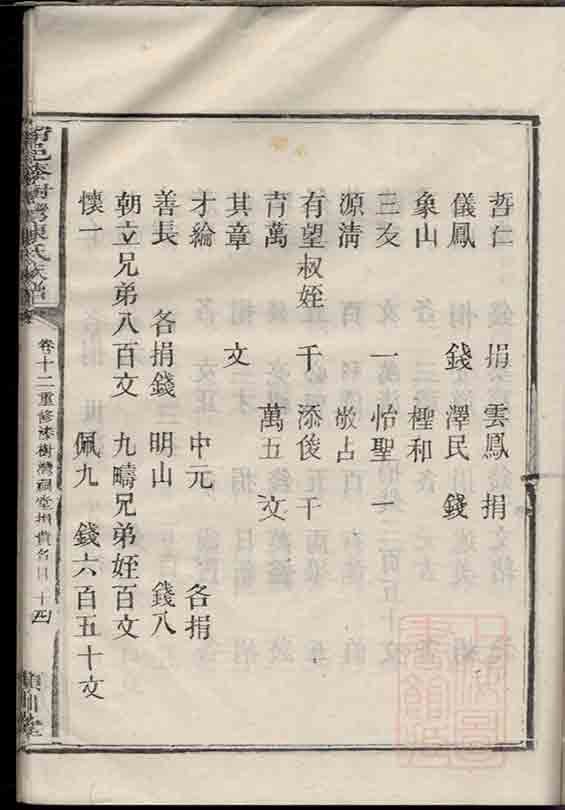 哲仁 捐 雲鳳 捐
儀鳳 錢 澤民 錢
象山 樫和
三友 一 怡聖 一
源淸 敬占
有望叔姪 千 添俊 千
萬
其章 文 萬五 文
才綸 中元 各捐
善長 各捐錢 明山 錢八
朝立兄弟八百文 九疇兄弟姪百文
懷一 佩九 錢六百五十文
邑漆樹灣陳氏族譜
卷十二重修漆樹灣祠堂捐貲名目 十四
潁川堂